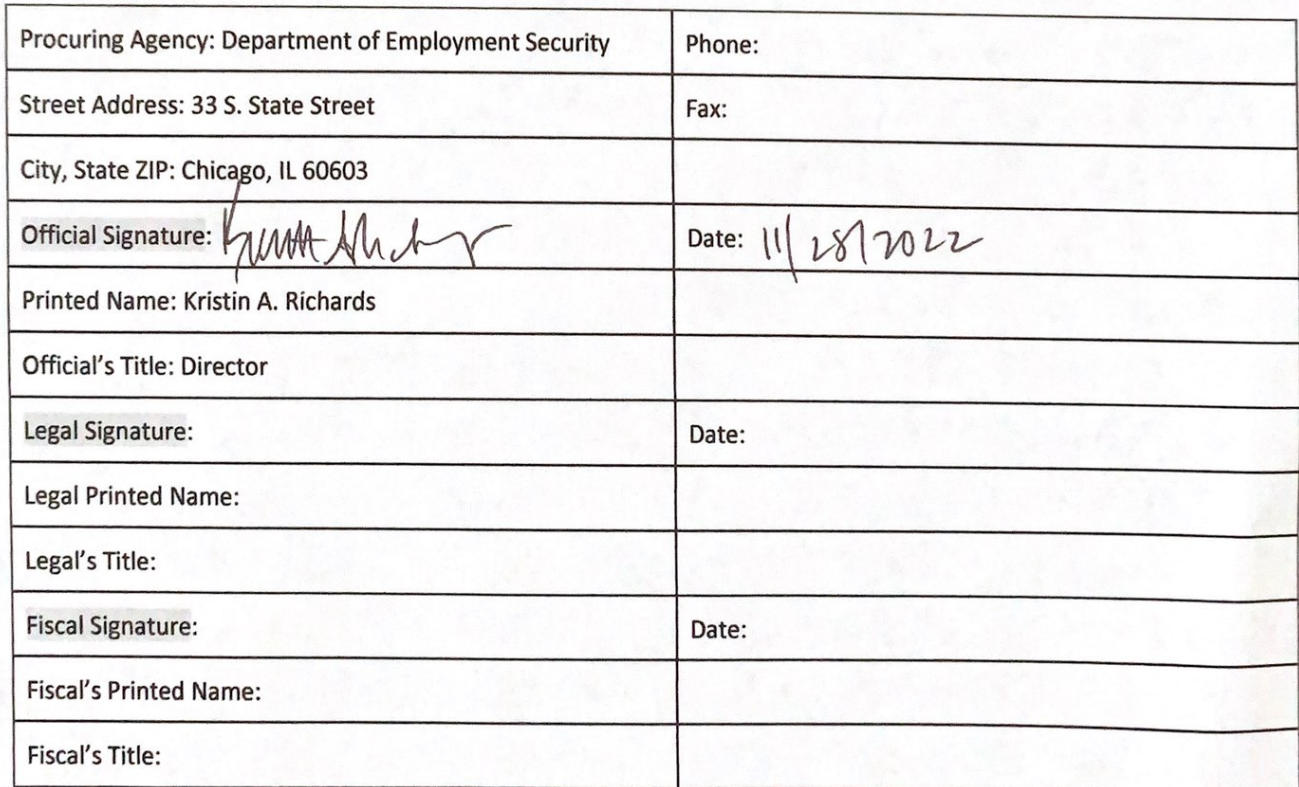 Procuring Agency: Department of Employment Security
Phone:
Street Address: 33 S. State Street
Fax:
City, State ZIP: Chicago, IL 60603
Official Signature:
Date: 11/28/2022
Printed Name: Kristin A. Richards
Official's Title: Director
Legal Signature:
Date:
Legal Printed Name:
Legal's Title:
Fiscal Signature:
Date:
Fiscal's Printed Name:
Fiscal's Title: